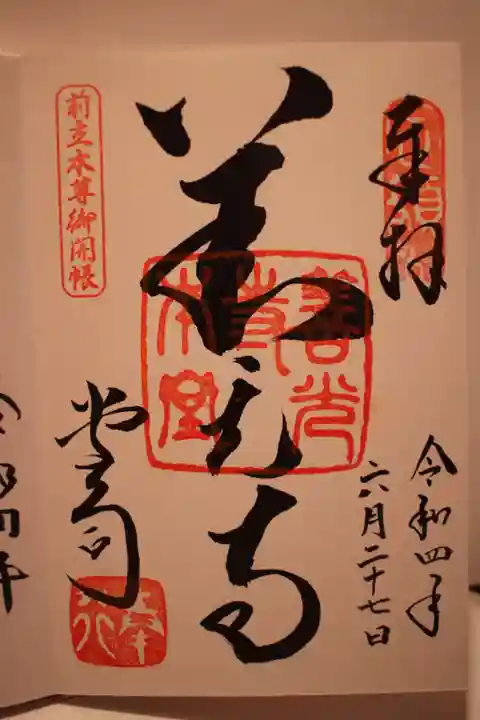 奉拝
令和四年
六月二十七日
善光寺
善光
寺
本堂
前立本尊御開帳